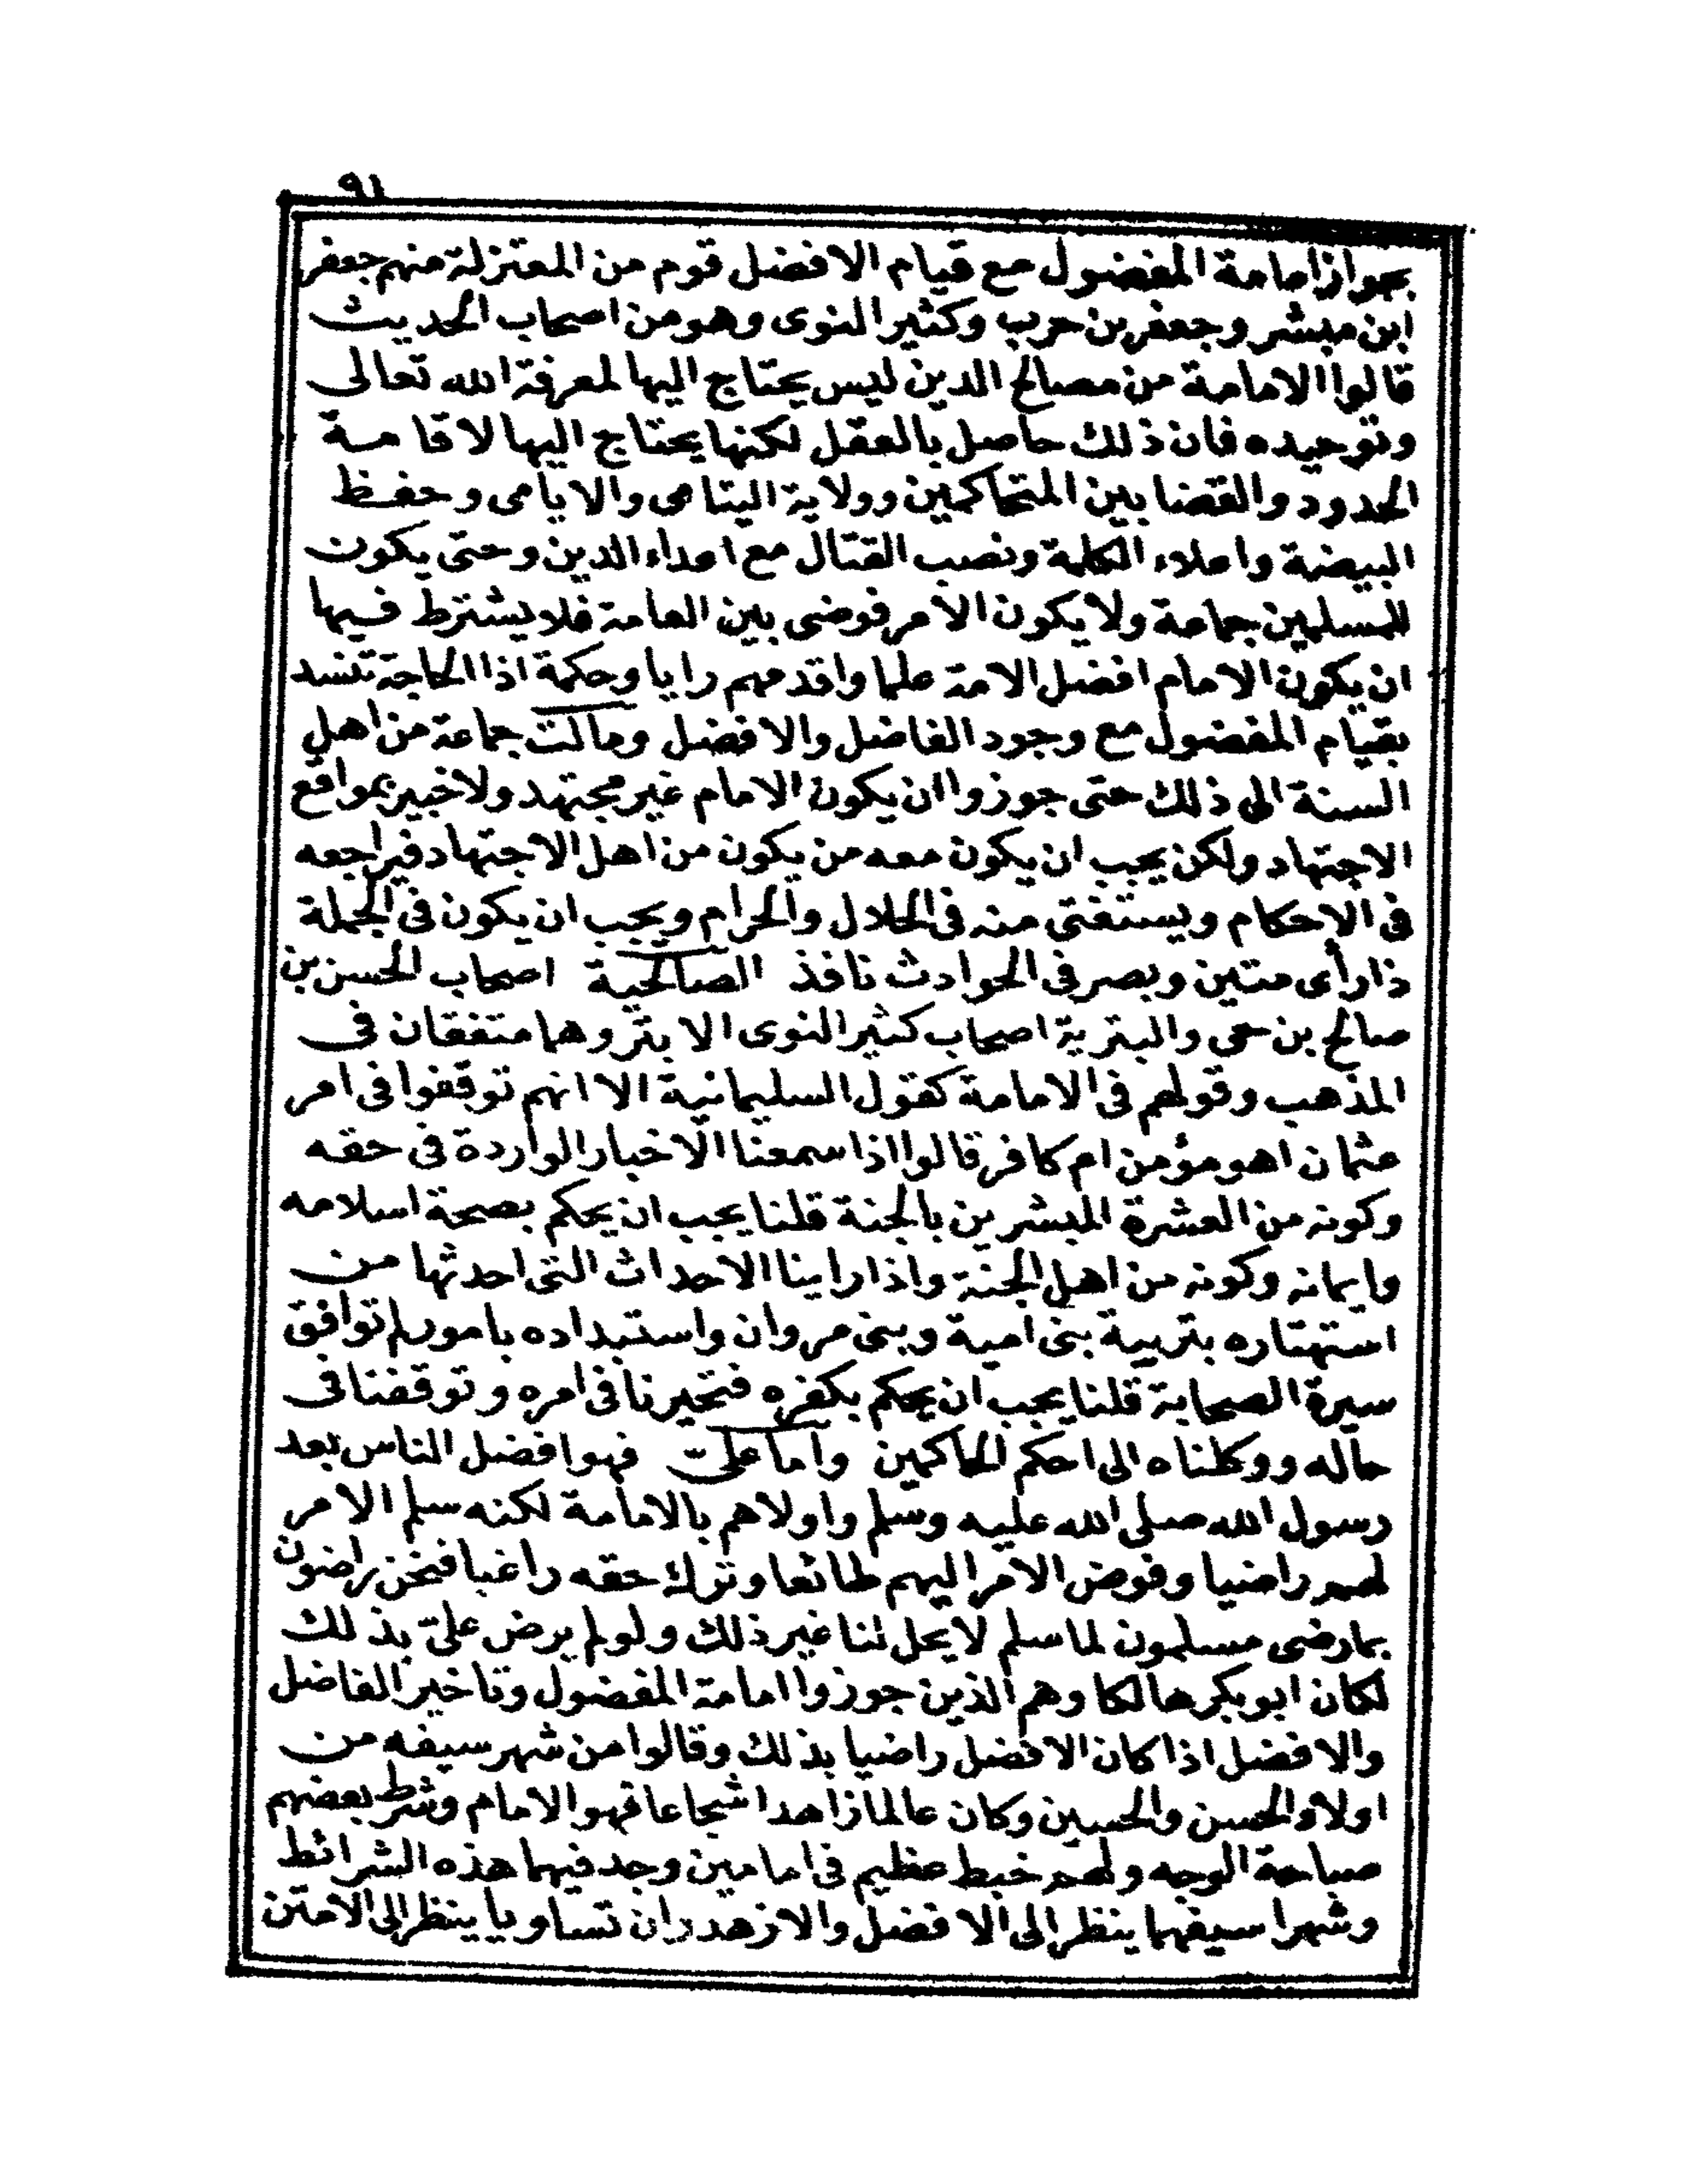 ٩١
بجواز امامة المفضول مع قيام الافضل قوم من المعتزلة منهم جعفر
ابن مبشر وجعفر بن حرب وكثير النوى وهو من اصحاب الحديث
قالوا الامامة من مصالح الدين ليس يحتاج اليها لمعرفة الله تعالى
وتوحيده فان ذلك حاصل بالعقل لكنها يحتاج اليها لاقامة
الحدود والقضا بين المتحاكمين وولاية اليتامى والايامى وحفظ
البيضة واعلاء الكلمة ونصب القتال مع اعداء الدين وحتى يكون
للمسلمين جماعة ولا يكون الامر فوضى بين العامة فلا يشترط فيها
ان يكون الامام افضل الامة علما واقدمهم رايا وحكمة اذا الحاجة تنسد
بقيام المفضول مع وجود الفاضل والافضل ومالت جماعة من اهل
السنة الى ذلك حتى جوزوا ان يكون الامام غير مجتهد ولا خبير بمواقع
الاجتهاد ولكن يجب ان يكون معه من يكون من اهل الاجتهاد فيراجعه
فى الاحكام ويستفتى منه فى الحلال والحرام ويجب ان يكون فى الجملة
ذا رأى متين وبصر فى الحوادث نافذ الصالحية اصحاب الحسن بن
صالح بن حى والبترية اصحاب كثير النوى الابتر وهما متفقان فى
المذهب وقولهم فى الامامة كقول السليمانية الا انهم توقفوا فى امر
عثمان اهو مؤمن ام كافر قالوا اذا سمعنا الاخبار الواردة فى حقه
وكونه من العشرة المبشرين بالجنة قلنا يجب ان يحكم بصحة اسلامه
وايمانه وكونه من اهل الجنة واذا راينا الاحداث التى احدثها من
استهتاره بتربية بنى امية وبنى مروان واستبداده بامور لم توافق
سيرة الصحابة قلنا يجب ان يحكم بكفره فتحيرنا فى امره وتوقفنا فى
حاله ووكلناه الى احكم الحاكمين واما علىّ فهو افضل الناس بعد
رسول الله صلى الله عليه وسلم واولاهم بالامامة لكنه سلم الامر
لهم راضيا وفوض الامر اليهم طائعا وترك حقه راغبا فنحن راضون
بما رضى مسلمون لما سلم لا يحل لنا غير ذلك ولو لم يرض علىّ بذلك
لكان ابو بكر هالكا وهم الذين جوزوا امامة المفضول وتاخير الفاضل
والافضل اذا كان الافضل راضيا بذلك وقالوا من شهر سيفه من
اولاد الحسن والحسين وكان عالما زاهدا شجاعا فهو الامام وشرط بعضهم
صباحة الوجه ولهم خبط عظيم فى امامين وجد فيهما هذه الشرائط
وشهرا سيفهما ينظر الى الافضل والازهد وان تساويا ينظر الى الامتن